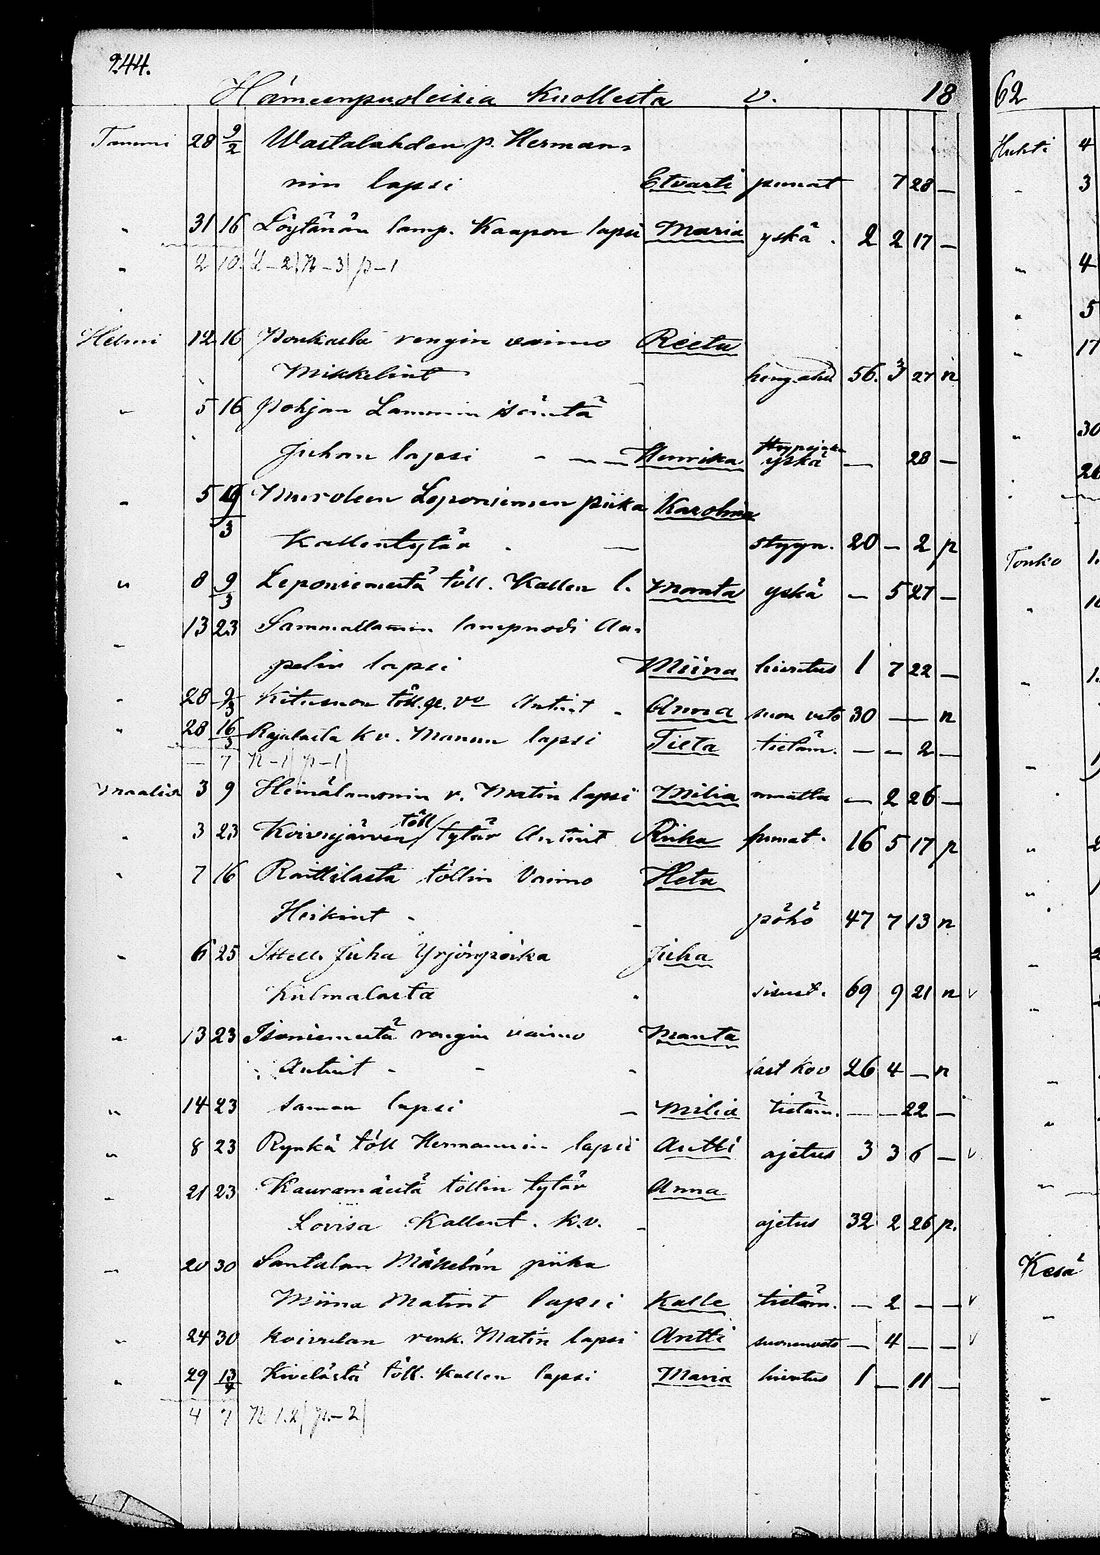 244.
Hämeenpuoleisia Kuolleita v. 18
Tammi 28 9/2 Wastalahden p. Herman-
nin lapsi Etvarti punat 7 28 —
" 31 16 Löytänän lamp. Kaapon lapsi Maria yskä . 2 2 17 —
" 2 10 n—3 p—1
Helmi 12 16 rengin vaimo Reeta
Mikkelint heng.ahd 56. 3 27 n
" 5 16 Pohjan Lammin isäntä
Juhan lapsi — Henrika yskä — 28 —
" 5 19/3 Leponiemen piika Karolina
Kallentytär — stygn. 20 — 2 p
" 8 9/3 Leponiemestä töll. Kallen l. Manta yskä — 5 27 —
" 13 23 Sammallamin lampuodi Aa-
pelin lapsi Miina kivutus 1 7 22 —
" 28 9/3 töll. Antint Anna suon veto 30 — — n
" 28 16/3 kv. Manun lapsi Tieta tietäm. — — 2 —
— 7 n—1 p—1
Maalis 3 9 Heinälammin v. Matin lapsi Milia — 2 26 —
" 3 23 Koivujärven töll tytär Antint Riika punat. 16 5 17 p
" 7 16 Raittilasta töllin Vaimo Heta
Heikint . pöhö 47 7 13 n
" 6 25 Ittell. Juha Yrjönpoika Juha
Külmalasta . sisust. 69 9 21 n v
" 13 23 Isoniemestä rengin vaimo Manta
Antint - - last kov 26 4 — n
" 14 23 saman lapsi — Milia tietäm. — — 22 —
" 8 23 Rynkä töll Hermannin lapsi Antti ajetus 3 3 6 — v
" 21 23 Kauramäestä töllin tytär Anna
Lovisa Kallent. k.v. - ajetus 32 2 26 p.
" 20 30 Santalan Mäkelän piika
Miina Matint lapsi Kalle tietäm. — 2 — — v
" 24 30 Koivulan renk. Matin lapsi Antti suonenveto — 4 — — v
" 29 13/4 Kivelästä töll. Kallen lapsi Maria kivutus 1 — 11 —
4 7 n 12 p—2
62
Huhti 4
" 3
" 4
" 5
" 17
" 30
" 26
Touko
Kesä